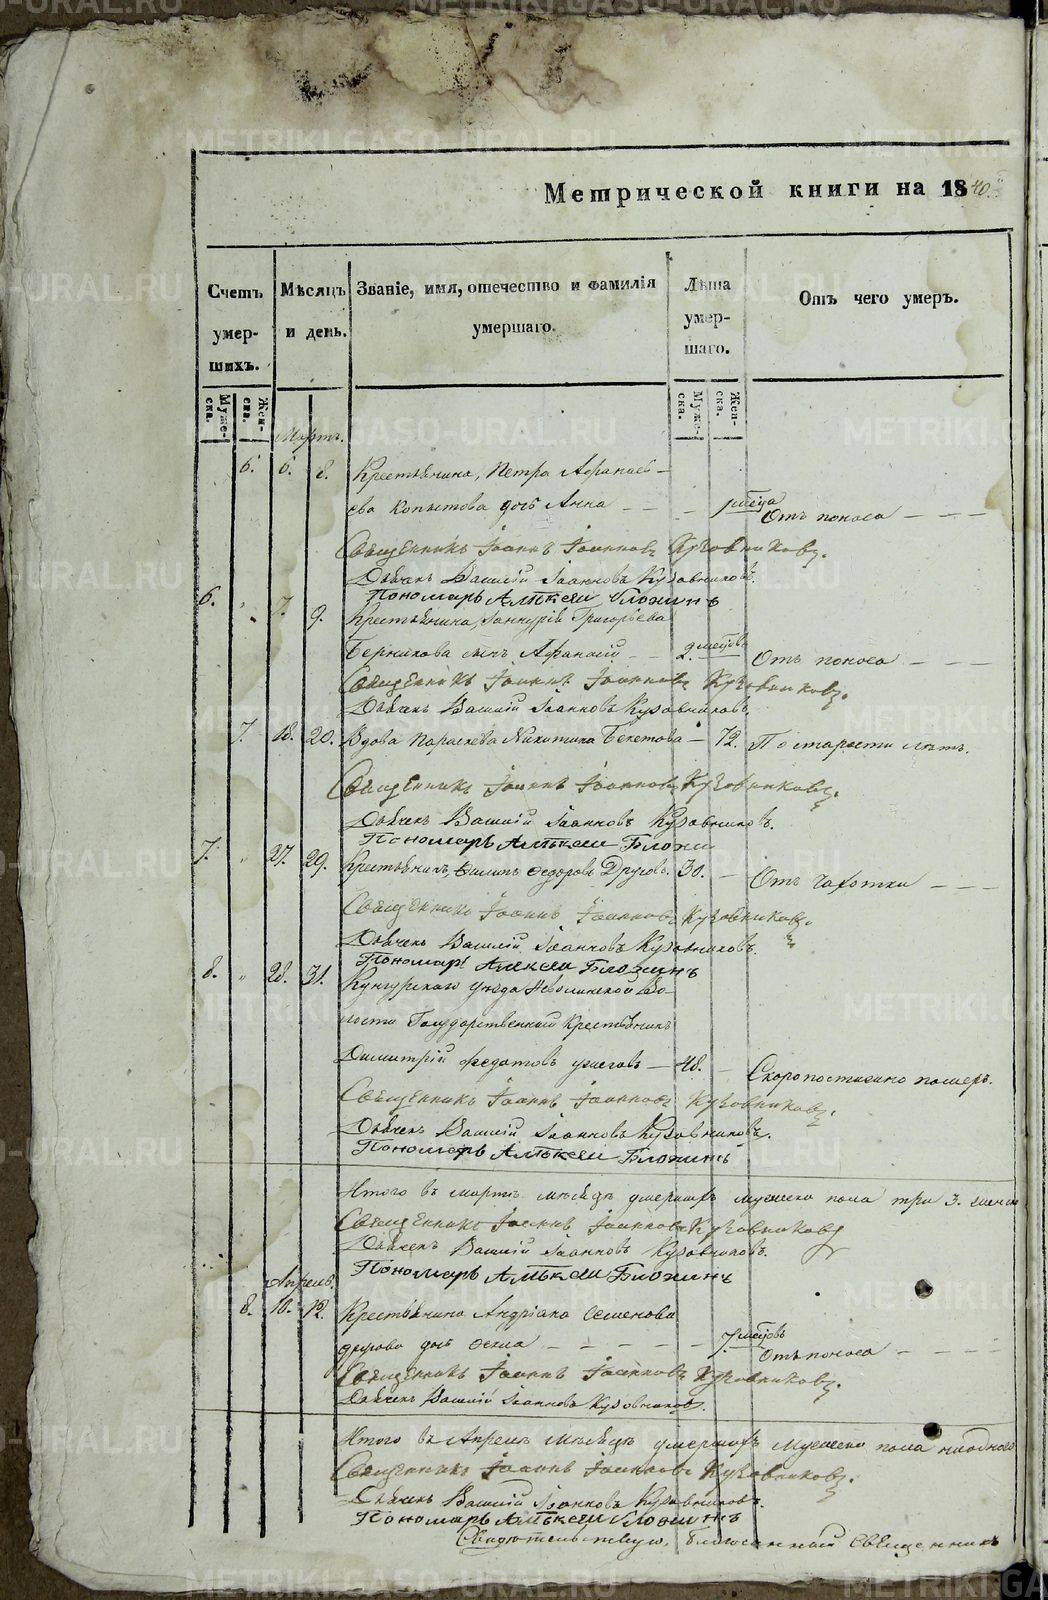 Метрической книги на 1840.
Счетъ умер-шихъ.
Мѣсяцъ и день.
Званіе, имя, отечество и фамилія умершаго.
Лѣта умер-шаго.
Отъ чего умеръ.
Муже-ска.
Жен-ска.
Муже-ска.
Жен-ска.
Мартъ.
6. 6. 8. Крестьянина, Петра Афанасі-
ева Копытова дочь Анна
Отъ поноса
Священникъ Іоаннъ Іоанновъ Кузовниковъ.
Дьячекъ Василій Іоанновъ Кузовниковъ.
Пономарь Алѣксѣи Бложинъ
6. " 7. 9. Крестьянина, Григорьева
Берникова сынъ Афанасій 2. мѣсцовъ Отъ поноса
Священникъ Іоаннъ Іоанновъ Кузовниковъ.
Дьячекъ Василій Іоанновъ Кузовниковъ.
7. 18. 20. Вдова Параскева Никитина Бекетова 72. По старости лѣтъ.
Священникъ Іоаннъ Іоанновъ Кузовниковъ.
Дьячекъ Василій Іоанновъ Кузовниковъ.
Пономарь Алѣксѣи Бложи
7. " 27. 29. Крестьянинъ, Филипъ Ѳедоровъ Друговъ. 30. Отъ чахотки
Священникъ Іоаннъ Іоанновъ Кузовниковъ.
Дьячекъ Василій Іоанновъ Кузовниковъ.
Пономарь Алѣксѣи Бложинъ
8. " 28. 31. Кунгурскаго уѣзда Неволинской Во-
лости Государственный Крестьянинъ
Димитрій Федотовъ 48. Скоропостижно померъ.
Священникъ Іоаннъ Іоанновъ Кузовниковъ.
Дьячекъ Василій Іоанновъ Кузовниковъ.
Пономарь Алѣксѣи Бложинъ
Итого въ мартѣ мѣсяцѣ умершихъ мужеска пола три 3. женска
Священникъ Іоаннъ Іоанновъ Кузовниковъ
Дьячекъ Василій Іоанновъ Кузовниковъ.
Пономарь Алѣксѣи Бложинъ
Апрель.
8. 10. 12. Крестьянина Андріана Семенова
другова дочь 7. мѣсцовъ Отъ поноса
Священникъ Іоаннъ Іоанновъ Кузовниковъ.
Дьячекъ Василій Іоанновъ Кузовниковъ.
Итого въ Апрелѣ мѣсяцѣ умершихъ мужеска пола ниодного
Священникъ Іоаннъ Іоанновъ Кузовниковъ.
Дьячекъ Василій Іоанновъ Кузовниковъ.
Пономарь Алѣксѣи Бложинъ
Свидѣтельствую, Благочинный Священникъ
METRIKI.GASO-URAL.RU